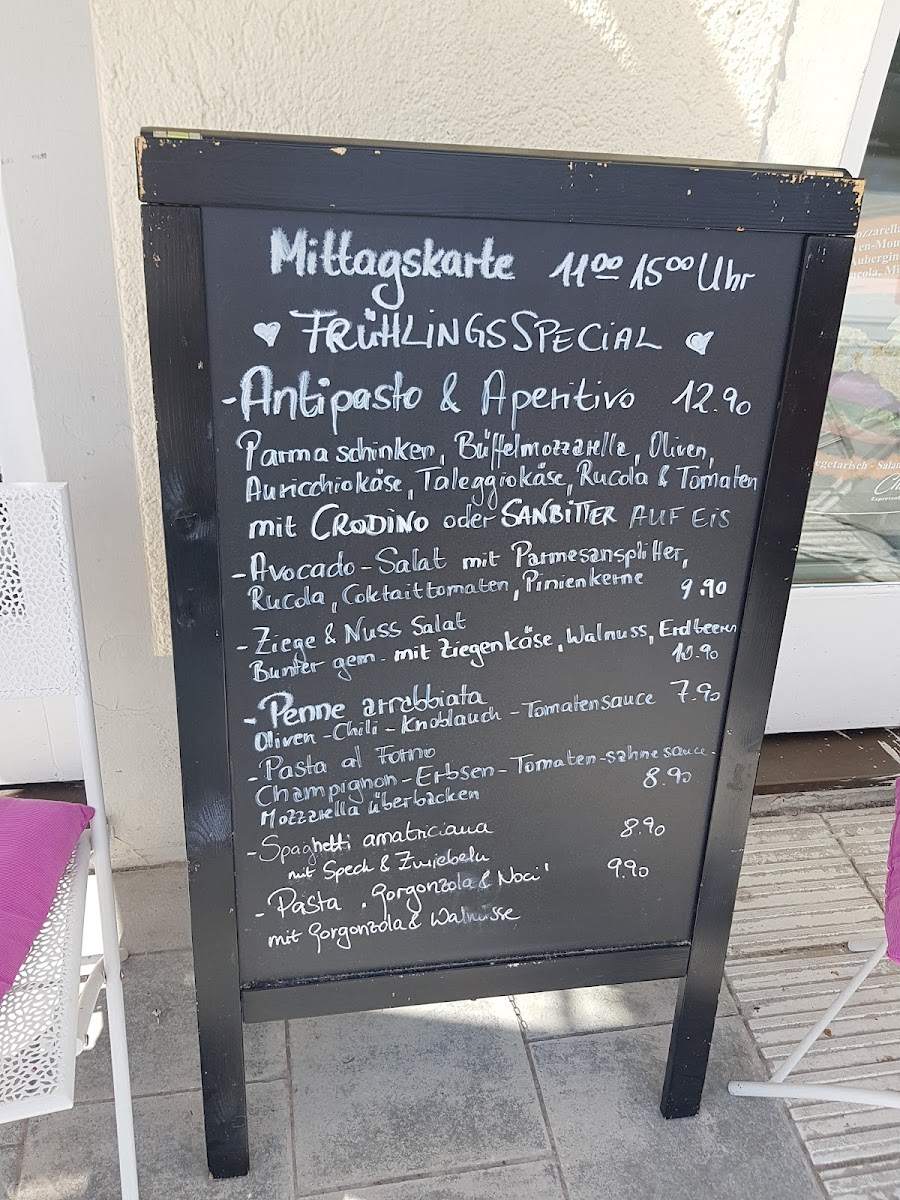 Mittagskarte 11⁰⁰ 15⁰⁰ Uhr
♥ FRÜHLINGSSPECIAL ♥
- Antipasto & Aperitivo 12.90
Parmaschinken, Büffelmozzarella, Oliven,
Auricchiokäse, Taleggiokäse, Rucola & Tomaten
mit CRODINO oder SANBITTER AUF EIS
- Avocado-Salat mit Parmesansplitter,
Rucola, Coktaittomaten, Pinienkerne 9.90
- Ziege & Nuss Salat
Bunter gem. mit Ziegenkäse, Walnuss, Erdbeeren
10.90
- Penne arrabbiata 7.90
Oliven-Chili-Knoblauch-Tomatensauce
- Pasta al Forno
Champignon-Erbsen-Tomaten-sahnesauce-
Mozzarella überbacken 8.90
- Spaghetti amatriciana 8.90
mit Speck & Zwiebeln
- Pasta "Gorgonzola & Noci" 9.90
mit Gorgonzola & Walnüsse